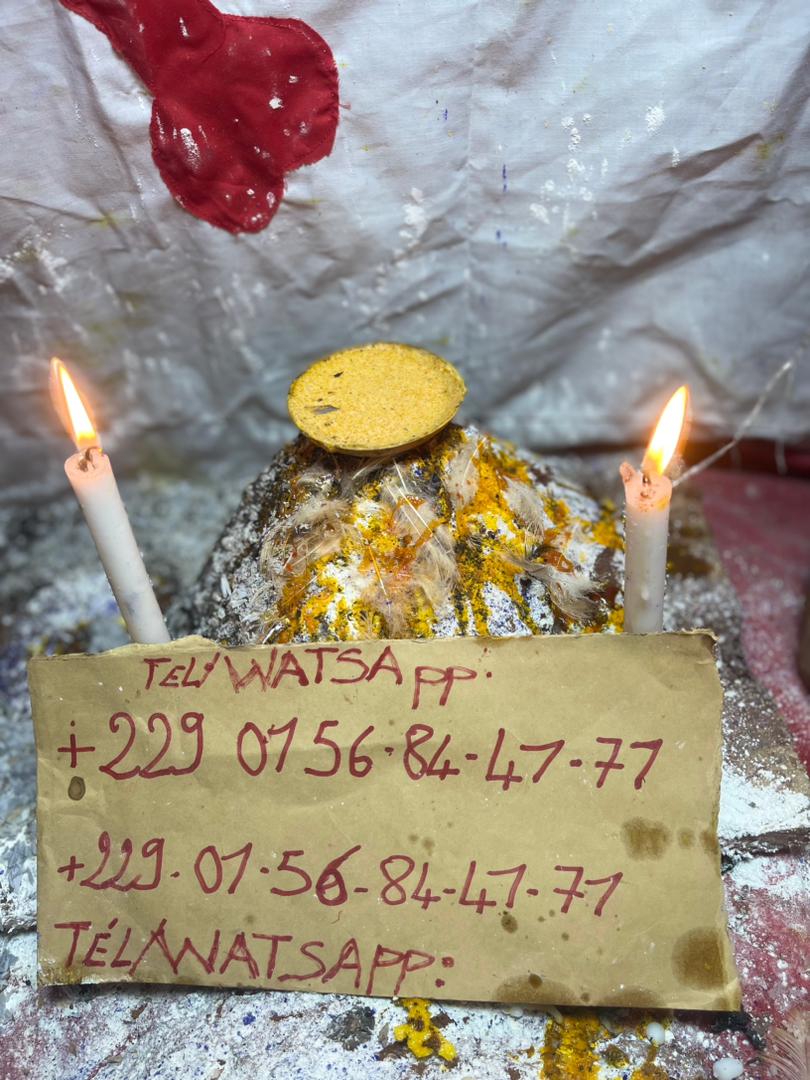 TEL/WATSApp.
+229 0156-84-41-71
+229.01.56-84-41-71
TÉL/WATSAPP: